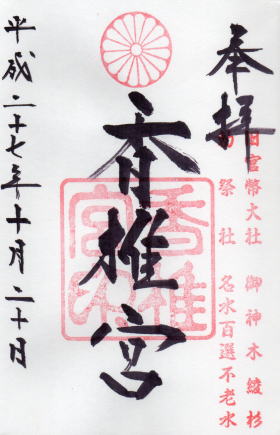 奉拝
旧官幣大社 御神木 綾杉
祭社 名水百選不老水
香椎宮
香椎宮印
平成二十七年十月二十日